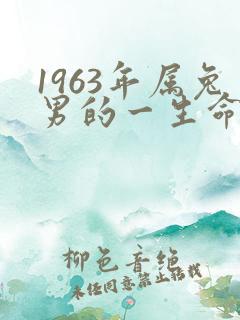 1963年属兔
男的一生命
柳色音绝
未经同意禁止搭载